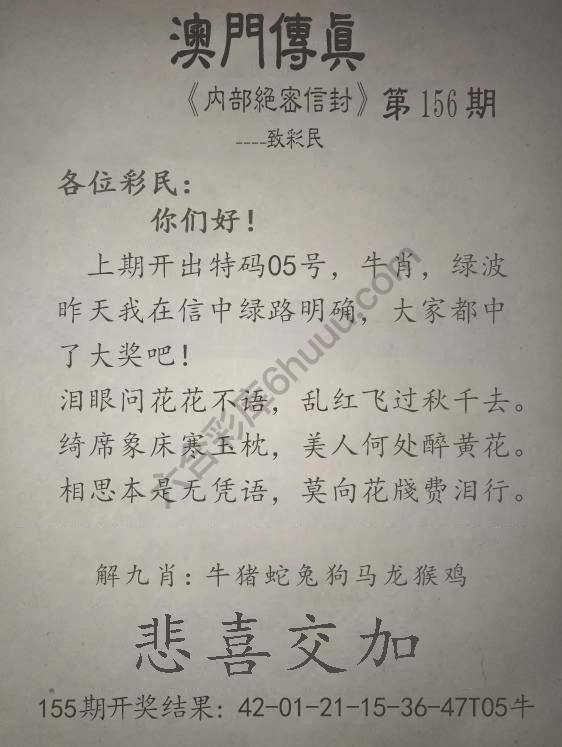 澳門傳真
《内部絕密信封》第156期
----致彩民
各位彩民：
你们好！
上期开出特码05号，牛肖，绿波
昨天我在信中绿路明确，大家都中
了大奖吧！
泪眼问花花不语，乱红飞过秋千去。
绮席象床寒玉枕，美人何处醉黄花。
相思本是无凭语，莫向花牋费泪行。
解九肖：牛猪蛇兔狗马龙猴鸡
悲喜交加
155期开奖结果：42-01-21-15-36-47T05牛
六合彩库6huuu.com